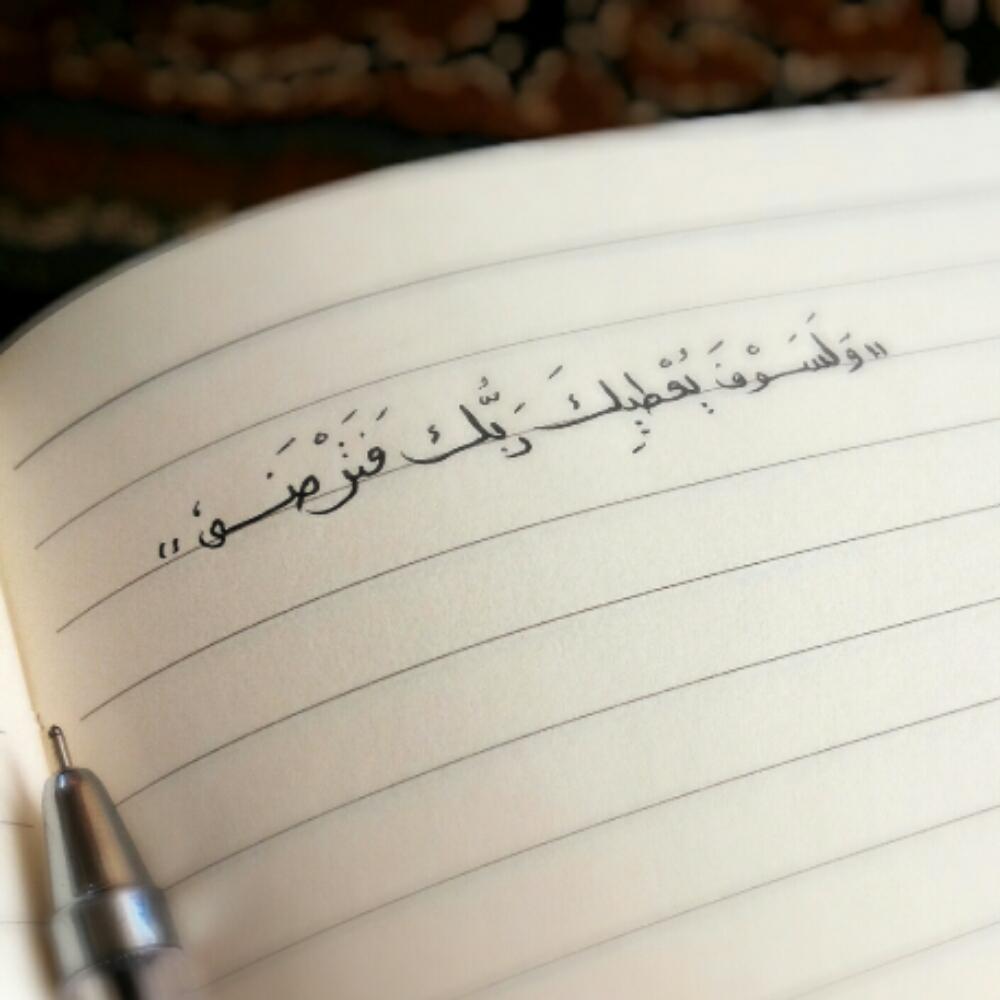 "وَلَسَوْفَ يُعْطِيكَ رَبُّكَ فَتَرْضَىٰ"